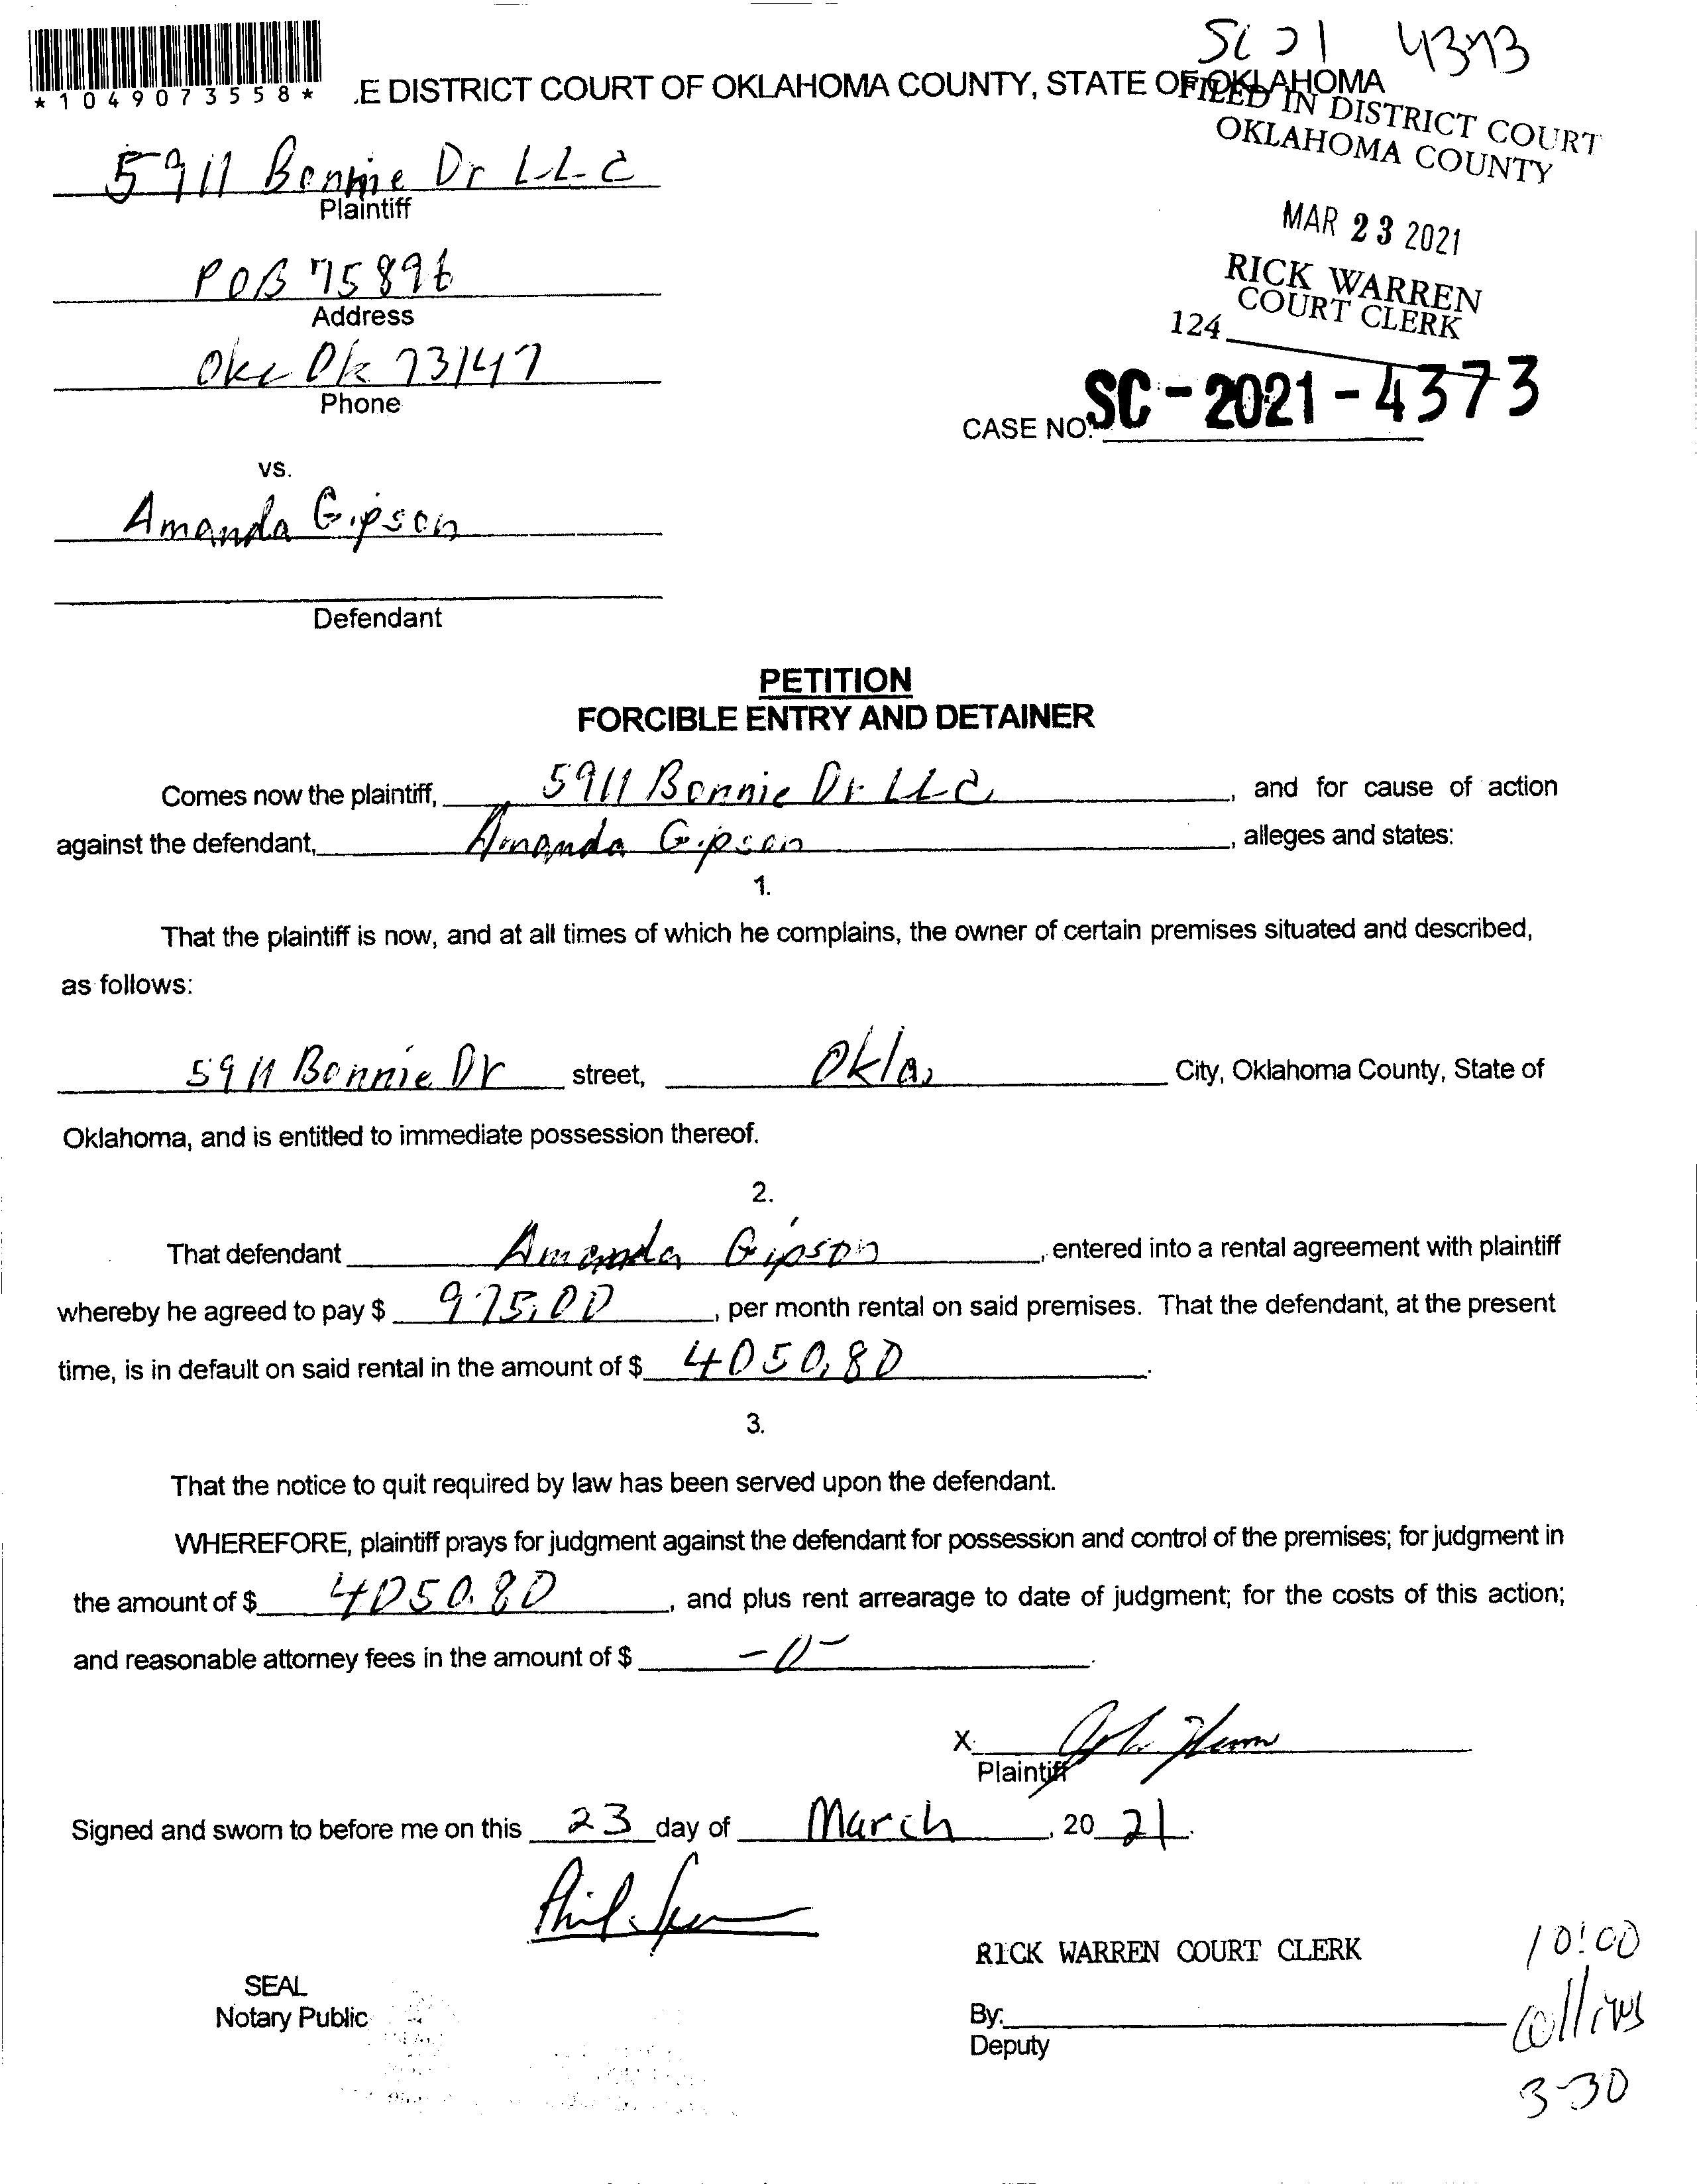 SC 21 4373
*1049073558*
.E DISTRICT COURT OF OKLAHOMA COUNTY, STATE OF OKLAHOMA
FILED IN DISTRICT COURT
OKLAHOMA COUNTY
MAR 23 2021
RICK WARREN
COURT CLERK
124
5911 Bonnie Dr LLC
Plaintiff
POB 75896
Address
Okc Ok 73147
Phone
CASE NO. SC-2021-4373
vs.
Amanda Gipson
Defendant
PETITION
FORCIBLE ENTRY AND DETAINER
Comes now the plaintiff, 5911 Bonnie Dr LLC, and for cause of action
against the defendant, Amanda Gipson, alleges and states:
1.
That the plaintiff is now, and at all times of which he complains, the owner of certain premises situated and described,
as follows:
5911 Bonnie Dr street, Okla, City, Oklahoma County, State of
Oklahoma, and is entitled to immediate possession thereof.
2.
That defendant Amanda Gipson, entered into a rental agreement with plaintiff
whereby he agreed to pay $ 975.00, per month rental on said premises. That the defendant, at the present
time, is in default on said rental in the amount of $ 4050.80.
3.
That the notice to quit required by law has been served upon the defendant.
WHEREFORE, plaintiff prays for judgment against the defendant for possession and control of the premises; for judgment in
the amount of $ 4050.80, and plus rent arrearage to date of judgment; for the costs of this action;
and reasonable attorney fees in the amount of $ -0-.
X
Plaintiff
Signed and sworn to before me on this 23 day of March, 20 21.
RICK WARREN COURT CLERK
10:00
SEAL
Notary Public
By:
Deputy
Collins
3-30